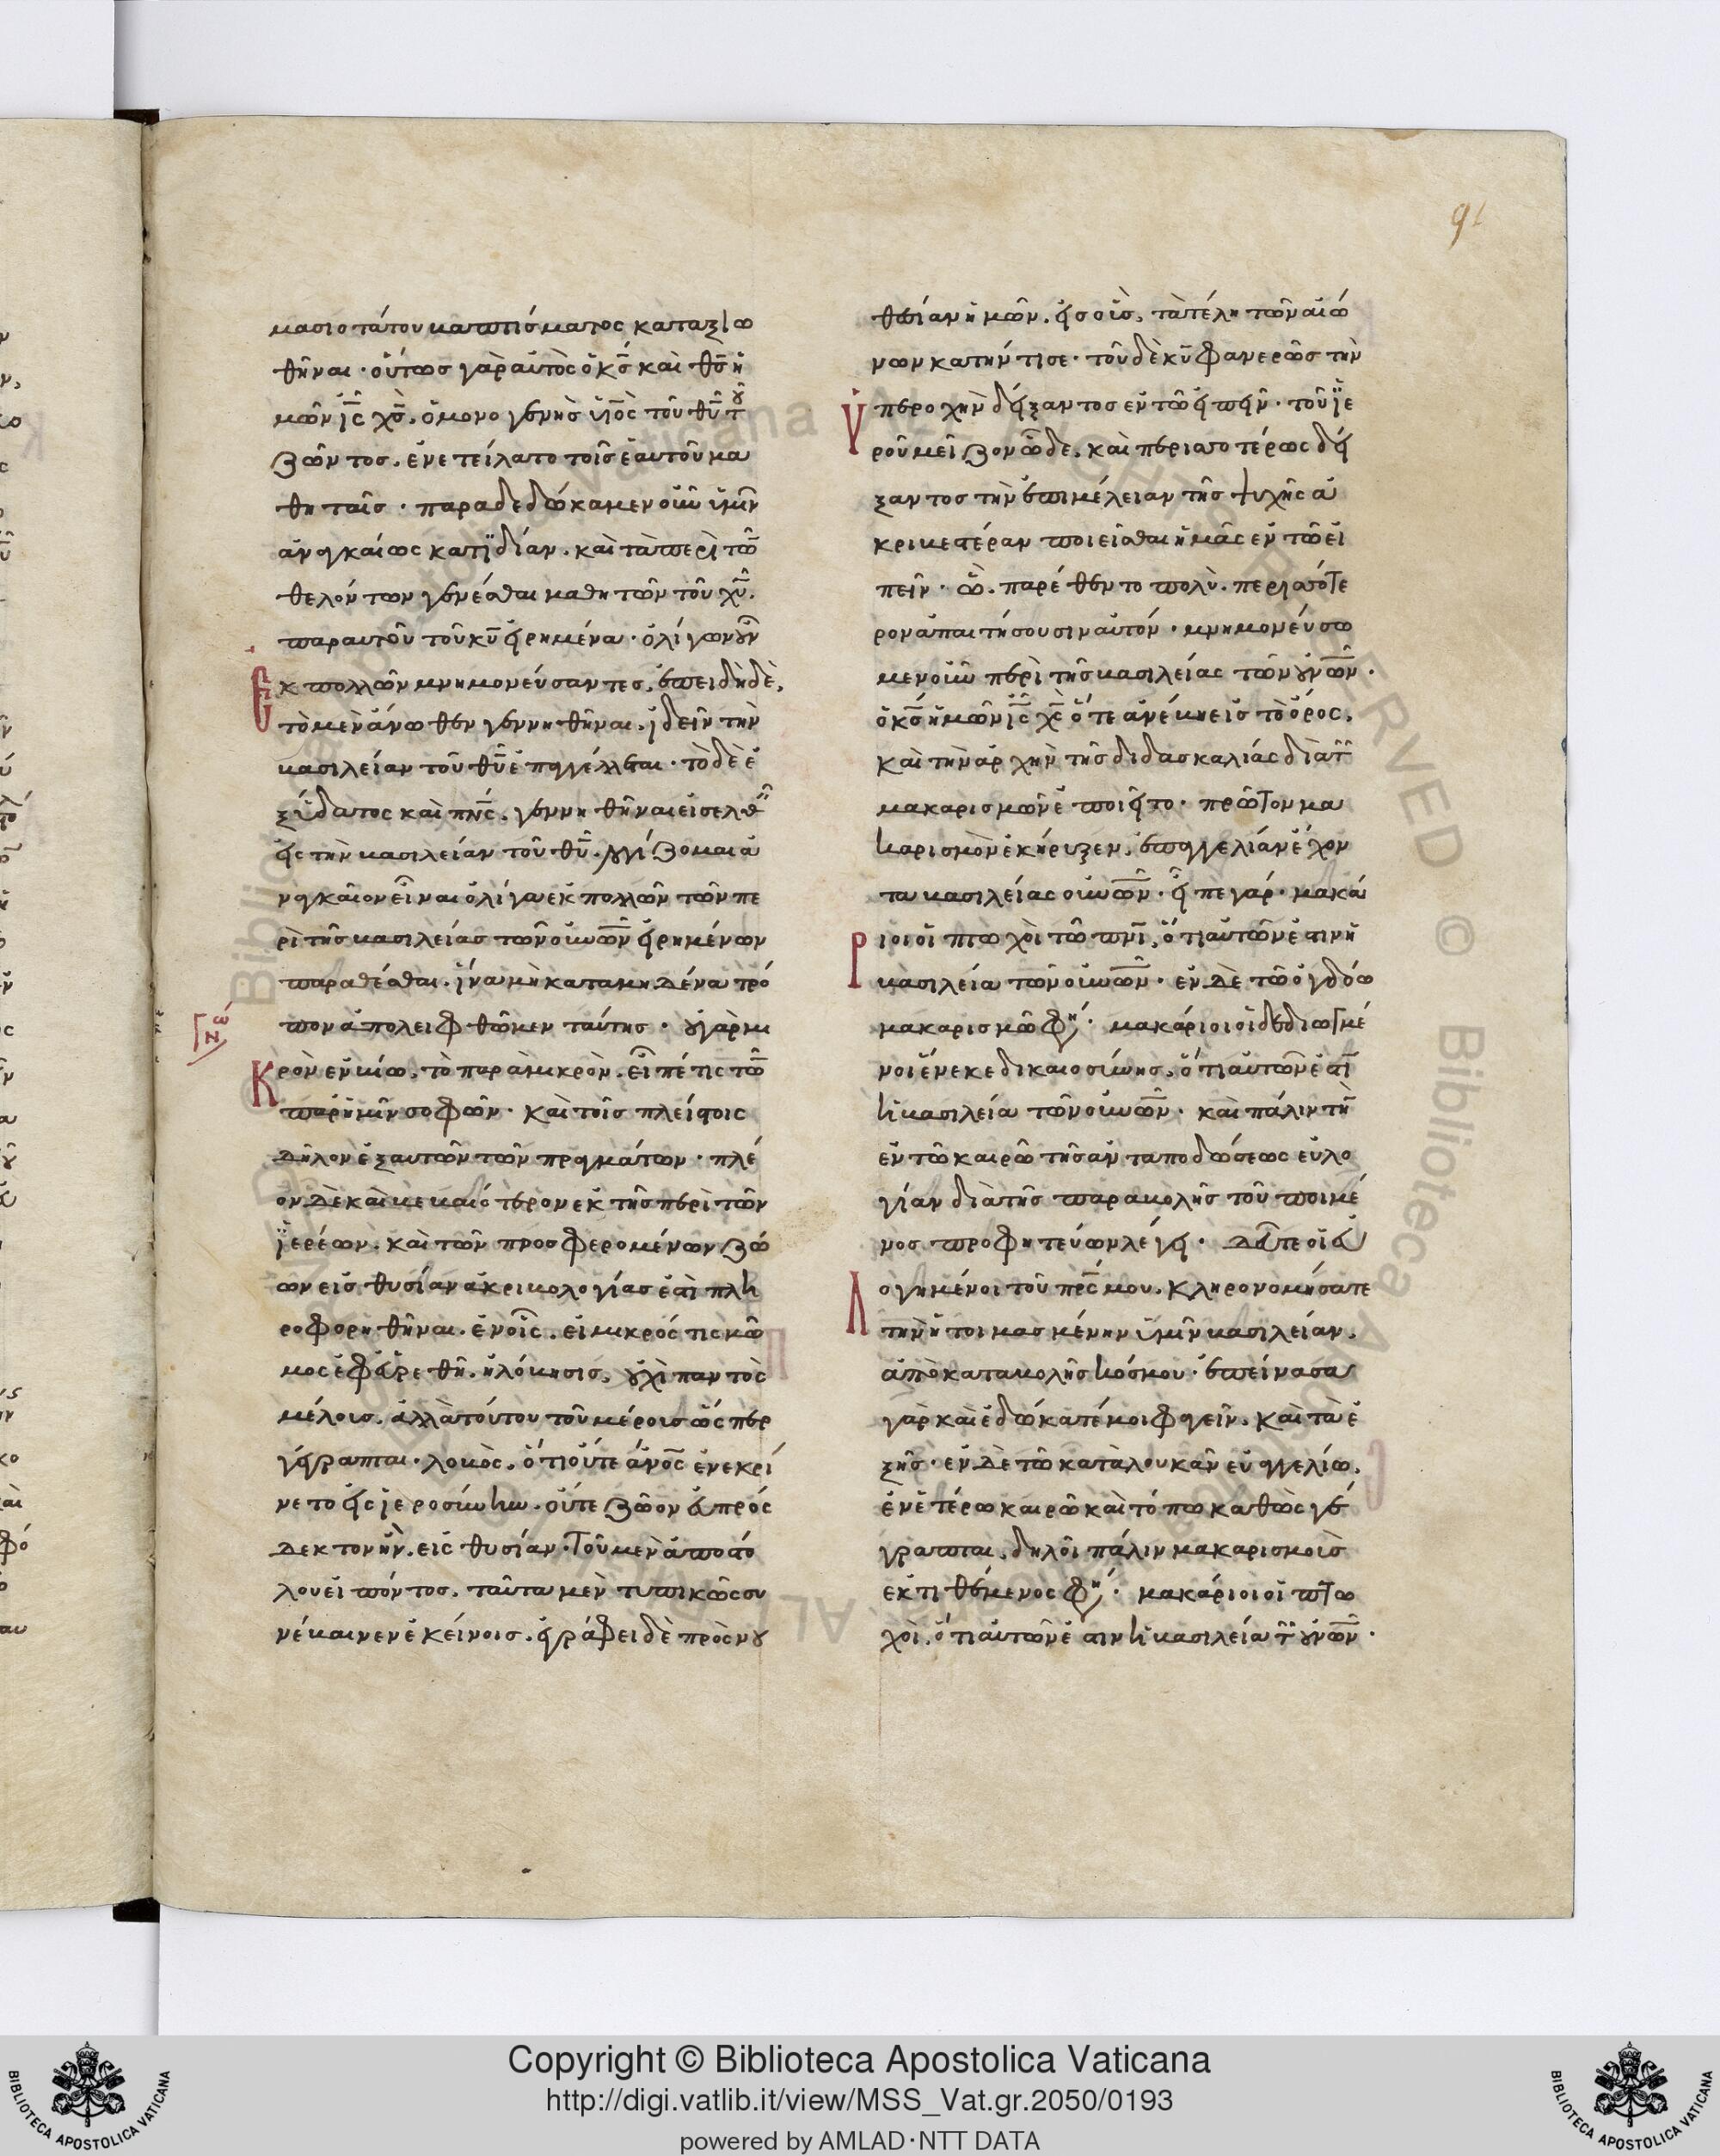 91
μασιοτάτου βαπτίσματος καταξιω
θῆναι· οὕτως γὰρ αὐτὸς ὁ κς̄ καὶ θς̄ ἡ
μῶν ις̄ χς̄, ὁ μονογενὴς υἱὸς τοῦ θῦ τοῦ
ζῶντος, ἐνετείλατο τοῖς ἑαυτοῦ μα
θηταῖς· παραδεδώκαμεν οὖν ὑμῖν
ἀναγκαίως κατϊδίαν, καὶ τὰ περὶ τῶν
θελόντων γενέσθαι μαθητῶν τοῦ χῦ,
παραυτοῦ τοῦ κῦ εἰρημένα· ὀλίγων οὖν
ἐκ πολλῶν μνημονεύσαντες, ἐπειδὴ δὲ,
τὸ μὲν ἄνωθεν γεννηθῆναι, ἰδεῖν τὴν
βασιλείαν τοῦ θῦ ἐπαγγέλλεται· τὸ δὲ ἐ
ξ ὕδατος καὶ πνς̄, γεννηθῆναι εἰσελθεῖν
εἰς τὴν βασιλείαν τοῦ θῦ, λογίζομαι ἀ
ναγκαῖον εἶναι ὀλίγα ἐκ πολλῶν τῶν πε
ρὶ τῆς βασιλείας τῶν οὐνῶν εἰρημένων
παραθέσθαι, ἵνα μὴ καταμηδένα τρό
πον ἀπολειφθῶμεν ταύτης· οὐ γὰρ μι
κρὸν ἐν βίω, τὸ παρὰ μικρὸν, εἶπέ τις τῶν
παρ ἡμῖν σοφῶν· καὶ τοῖς πλείστοις
δῆλον ἐξ αυτῶν τῶν πραγμάτων· πλέ
ον δὲ καὶ βεβαιότερον ἐκ τῆς περὶ τῶν
ἱερέων, καὶ τῶν προσφερομένων ζώ
ων εἰς θυσίαν ἀκριβολογίας ἐστὶ πλη
ροφορηθῆναι, ἐν οἷς, εἰ μικρός τις μῶ
μος ἐφευρέθη, ἡ λόβησις, οὐχὶ παντὸς
μέλους, ἀλλὰ τούτου τοῦ μέρους ὥς περ
γέγραπται· λοβὸς, ὅτι οὔτε ἄνος̄ ἐνεκρί
νετο εἰς ἱεροσύνην, οὔτε ζῶον εὐπρόσ
δεκτον ἦν, εἰς θυσίαν· τοῦ μεν ἀποστό
λου εἰπόντος, ταῦτα μὲν τυπικῶς συ
νέβαινεν ἐκείνοις, ἐγράφει δὲ πρὸς νου
θεσίαν ἡμῶν, εἰς οὓς, τὰ τέλη τῶν αἰώ
νων κατήντησε· τοῦ δὲ κῦ φανερῶς τὴν
ὑπεροχὴν δείξαντος ἐν τῶ εἰπεῖν· τοῦ ἱε
ροῦ μεῖζον ὧδε, καὶ περισσοτέρως δεί
ξαντος τὴν ἐπιμέλειαν τῆς ψυχῆς ἀ
κριβεστέραν ποιεῖσθαι ἡμᾶς ἐν τῶ εἰ
πεῖν· ὧ, παρέθεντο πολὺ, περισσότε
ρον ἀπαιτήσουσιν αὐτόν· μνημονεύσω
μεν οὖν περὶ τῆς βασιλείας τῶν οὐνῶν·
ὁ κς̄ ἡμῶν ις̄ χς̄ ὅτε ἀνέβη εἰς τὸ ὄρος,
καὶ τὴν ἀρχὴν τῆς διδασκαλίας διὰ τῶν
μακαρισμῶν ἐποιεῖτο· πρῶτον μα
καρισμὸν ἐκήρυξεν, ἐπαγγελίαν ἔχον
τα βασιλείας οὐνῶν· εἶπε γάρ· μακά
ριοι οἱ πτωχοὶ τῶ πνι, ὅτι αὐτῶν ἐστιν ἡ
βασιλεία τῶν οὐνῶν· ἐν δὲ τῶ ὀγδόω
μακαρισμῶ φησί· μακάριοι οἱ δεδιωγμέ
νοι ἕνεκε δικαιοσύνης, ὅτι αὐτῶν ἐστὶ
ἡ βασιλεία τῶν οὐνῶν· καὶ πάλιν τὴν
ἐν τῶ καιρῶ τῆς ἀνταποδώσεως εὐλο
γίαν διὰ τῆς παραβολῆς τοῦ ποιμέ
νος προφητεύων λέγει· δεῦτε οἱ εὐ
λογημένοι τοῦ πρς̄ μου, κληρονομήσατε
τὴν ἡτοιμασμένην ὑμῖν βασιλείαν,
ἀπὸ καταβολῆς κόσμου· ἐπείνασα
γὰρ καὶ ἐδώκατέ μοι φαγεῖν, καὶ τὰ ἑ
ξῆς· ἐν δὲ τῶ κατὰ λουκᾶν εὐαγγελίω,
ἐν ἑτέρω καιρῶ καὶ τόπω καθὼς γέ
γραπται, δηλοῖ πάλιν μακαρισμοὺς
ἐκτιθέμενος φησί· μακάριοι οἱ πτω
χοὶ, ὅτι αὐτῶν ἐστιν ἡ βασιλεία τῶν οὐνῶν·
Copyright © Biblioteca Apostolica Vaticana
http://digi.vatlib.it/view/MSS_Vat.gr.2050/0193
powered by AMLAD·NTT DATA